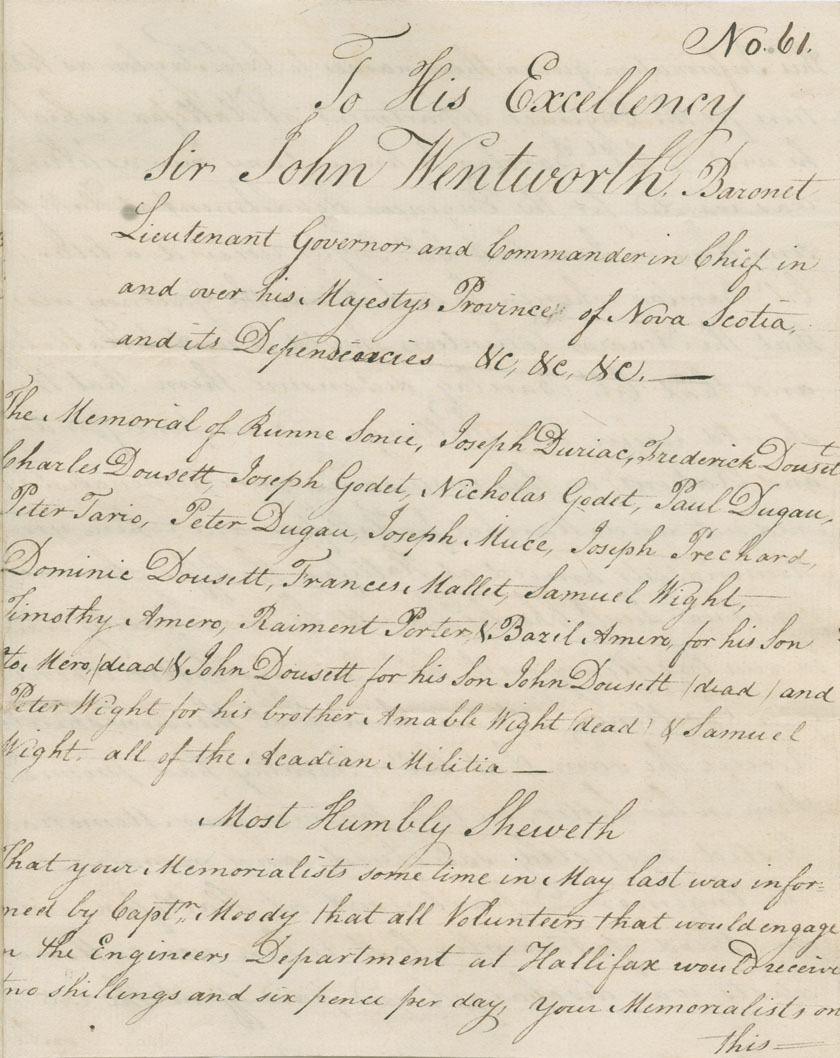 No. 61.
To His Excellency
Sir John Wentworth. Baronet
Lieutenant Governor and Commander in Chief in
and over his Majestys Province of Nova Scotia,
and its Dependencies &c, &c, &c. —
The Memorial of Runne Sonie, Joseph Duriac, Frederick Dousett
Charles Dousett, Joseph Godet, Nicholas Godet, Paul Dugau,
Peter Tario, Peter Dugau, Joseph Muce, Joseph Prechard,
Dominic Dousett, Frances Mallet, Samuel Wight,
Timothy Amero, Raiment Porter, & Bazil Amero, for his Son
Mero, (dead) & John Dousett for his Son John Dousett (dead) and
Peter Wight for his brother Amable Wight (dead) & Samuel
Wight. all of the Acadian Militia —
Most Humbly Sheweth
That your Memorialists some time in May last was infor=
med by Captn. Moody that all Volunteers that would engage
in the Engineers Department at Hallifax would receive
two shillings and six pence per day, Your Memorialists on
this —